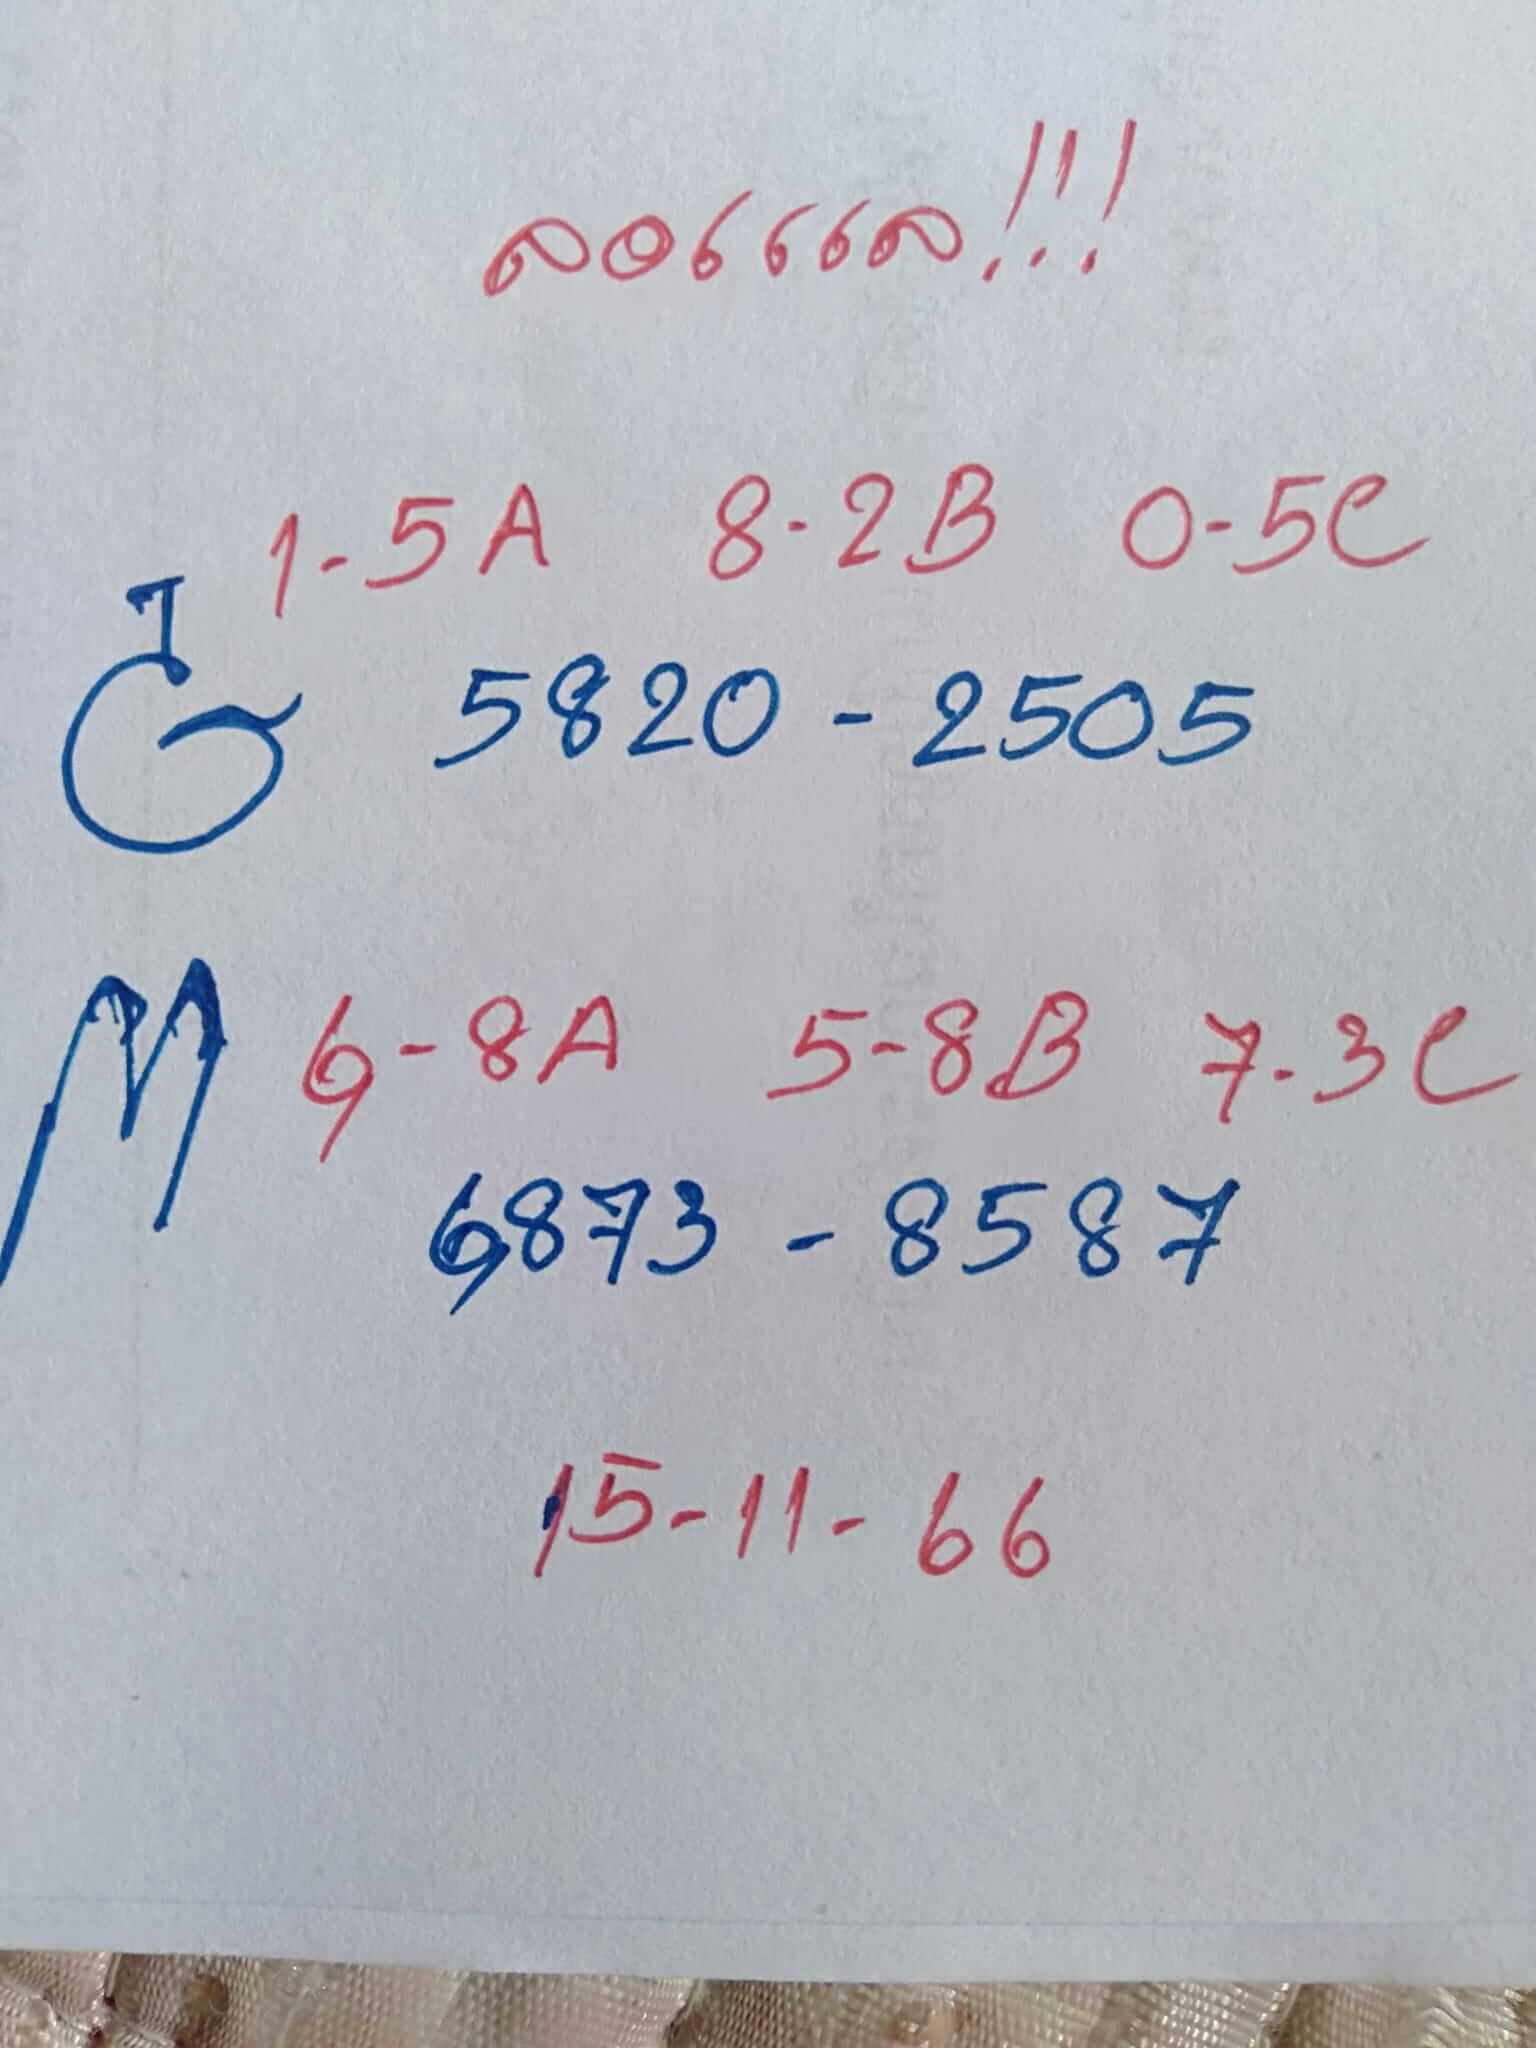 1-5A 8-2B 0-5C
5820 - 2505
M 6-8A 5-8B 7-3C
6873 - 8587
15-11-66